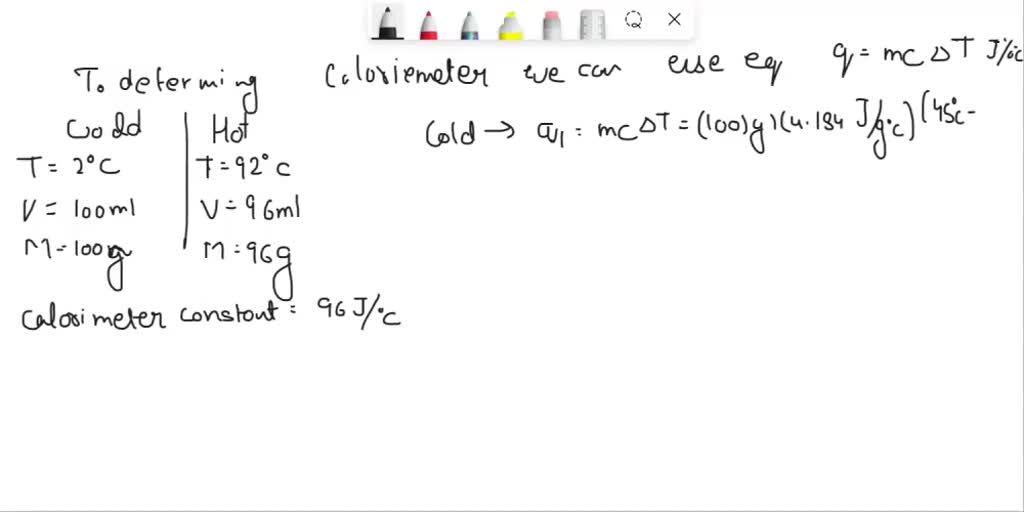 To determing Caloriemeter we can use eq q = mc ΔT J/°c
Codd Hot
T = 2°C T = 92°c
V = 100ml V = 96ml
M = 100g M = 96g
Calorimeter constant = 96 J/°c
Cold → q1 = mc ΔT = (100)g)(4.184 J/g°c)(45°c -